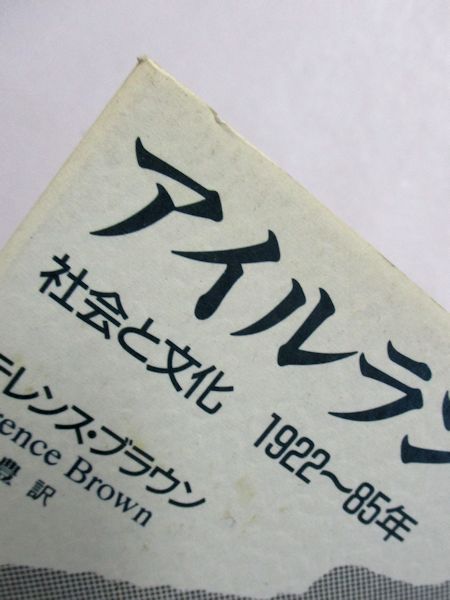 アイルラン
社会と文化 1922〜85年
テレンス・ブラウン
rence Brown
豊 訳